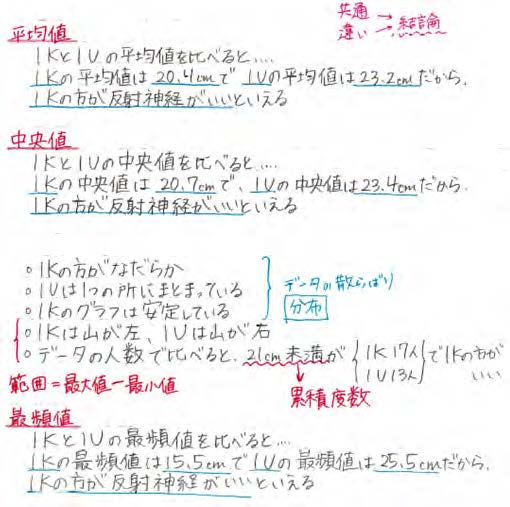 共通
違い → 結論
平均値
1Kと1Uの平均値を比べると….
1Kの平均値は 20.4cmで 1Uの平均値は23.2cmだから、
1Kの方が反射神経がいいといえる
中央値
1Kと1Uの中央値を比べると….
1Kの中央値は 20.7cmで、1Uの中央値は23.4cmだから、
1Kの方が反射神経がいいといえる
○ 1Kの方がなだらか
○ 1Uは1つの所にまとまっている
○ 1Kのグラフは安定している
データの散らばり
分布
○ 1Kは山が左、1Uは山が右
○ データの人数で比べると、21cm未満が 1K 17人 1U 13人 で1Kの方がいい
範囲=最大値-最小値
累積度数
最頻値
1Kと1Uの最頻値を比べると…
1Kの最頻値は15.5cmで1Uの最頻値は25.5cmだから、
1Kの方が反射神経がいいといえる